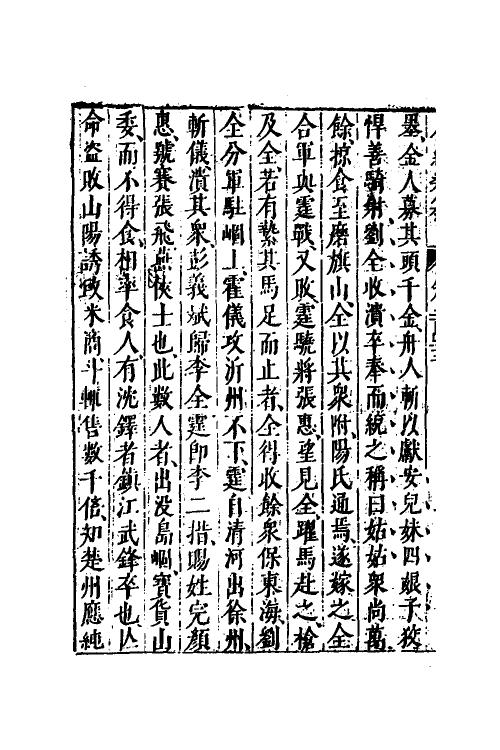 墨金人募其頭千金舟人斬以獻安兒妹四娘子狡
悍善騎射劉全收潰卒奉而統之稱曰姑姑衆尚萬
餘掠食至磨旗山全以其衆附陽氏通焉遂嫁之全
合軍與霆戰又敗霆驍將張惠望見全躍馬赴之槍
及全若有縶其馬足而止者全得收餘衆保東海劉
全分軍駐崓上霍儀攻沂州不下霆自清河出徐州
斬儀潰其衆彭義斌歸李全霆即李二措賜姓完顏
惠號賽張飛燕俠士也此數人者出没島崓寳貨山
委而不得食相率食人有沈鐸者鎮江武鋒卒也亾
命盗敗山陽誘致米商斗輒售數千倍知楚州應純